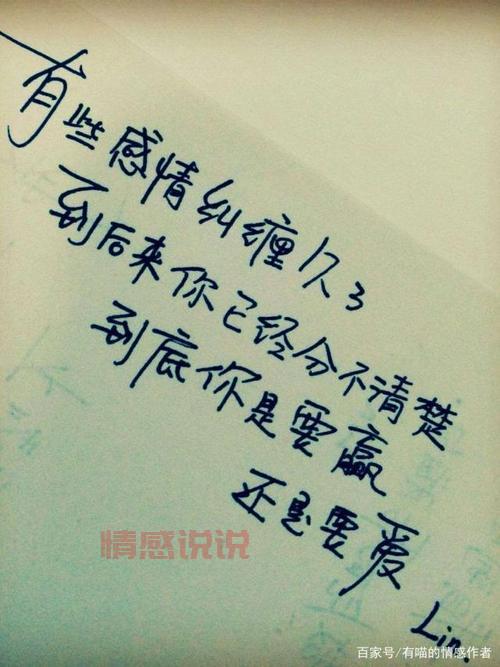 有些感情纠缠久了
到后来你已经分不清楚
到底你是要赢
还是要爱
Lin.
情感说说
百家号/有喵的情感作者